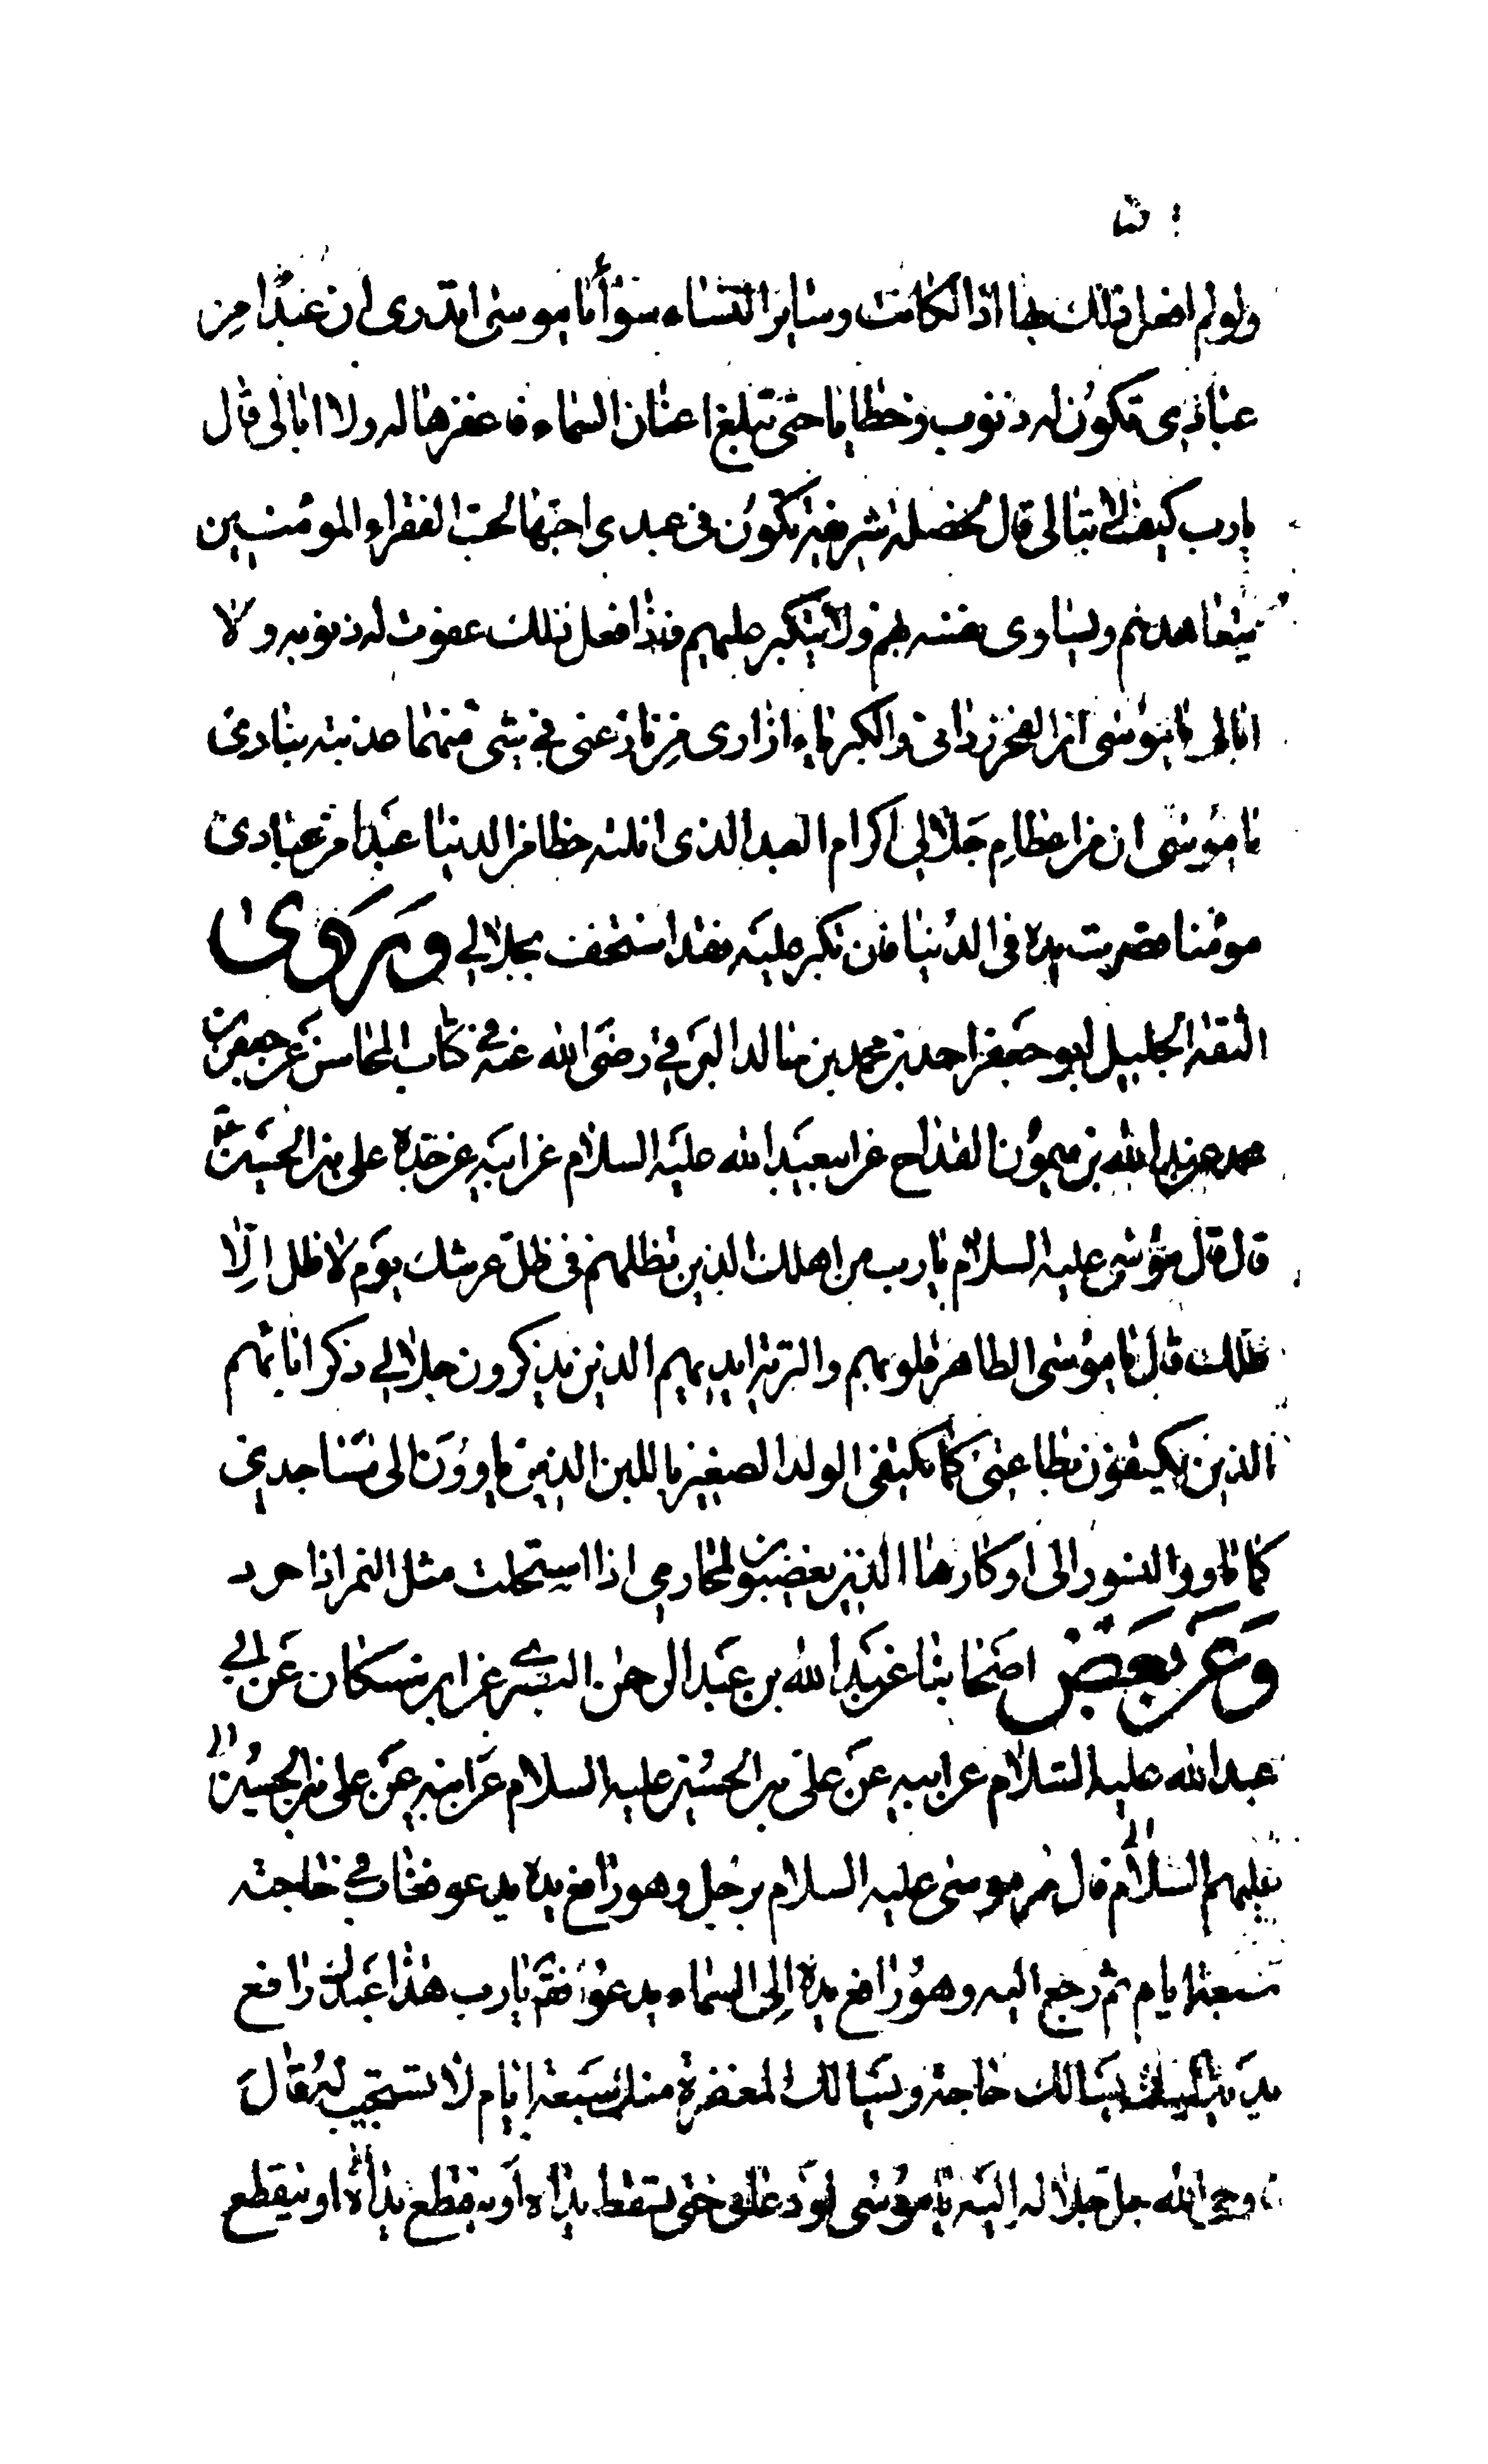 ولو لم افعل ذلك بها اذا لكانت وساير النساء سواً يا موسى اتدرى ان عبدا من
عبادى تكون له ذنوب وخطايا حتى تبلغ اعنان السماء فاغفرها له ولا ابالى قال
يارب كيف لا تبالى قال لخصلة شريفة تكون فى عبدى احبها يحب الفقراء المومنين
يتعاهدهم ويساوى نفسه بهم ولا يتكبر عليهم فاذا فعل ذلك غفرت له ذنوبه ولا
ابالى يا موسى ان الفخر ردائى والكبرياء ازارى من نازعنى فى شى منهما عذبته بنارى
يا موسى ان من اعظام جلالى اكرام العبد الذى انلته حظا من الدنيا عبدا من عبادى
مومنا قصرت يده فى الدنيا فان تكبر عليه فقد استخف بجلالى وروى
الثقة الجليل ابو جعفر احمد بن محمد بن خالد البرقى رضى الله عنه فى كتاب المحاسن عن جعفر بن
محمد عن عبد الله بن ميمون القداح عن ابى عبد الله عليه السلام عن ابيه عن جده على بن الحسين ع
قال قال موسى عليه السلام يا رب من اهلك الذين تظلهم فى ظل عرشك يوم لا ظل الا
ظلك قال يا موسى الطاهرة قلوبهم والتربة ايديهم الذين يذكرون جلالى ذكر ابائهم
الذين يكتفون بطاعتى كما يكتفى الولد الصغير باللبن الذين ياوون الى مساجدى
كما تاوى النسور الى اوكارها الذين يغضبون لمحارمى اذا استحلت مثل النمر اذا حرد
وعن بعض اصحابنا عن عبد الله بن عبد الرحمن البصرى عن ابن مسكان عن ابى
عبد الله عليه السلام عن ابيه عن على بن الحسين عليه السلام عن ابيه عن على بن الحسين
عليهم السلام قال مر موسى عليه السلام برجل وهو رافع يده يدعو فغاب فى حاجته
سبعة ايام ثم رجع اليه وهو رافع يده الى السماء يدعو فقال يا رب هذا عبدك رافع
يديه اليك يسالك حاجة ويسالك المغفرة منذ سبعة ايام لا تستجيب له قال
فاوحى الله جل جلاله اليه يا موسى لو دعانى حتى تسقط يداه او ينقطع يداه او ينقطع